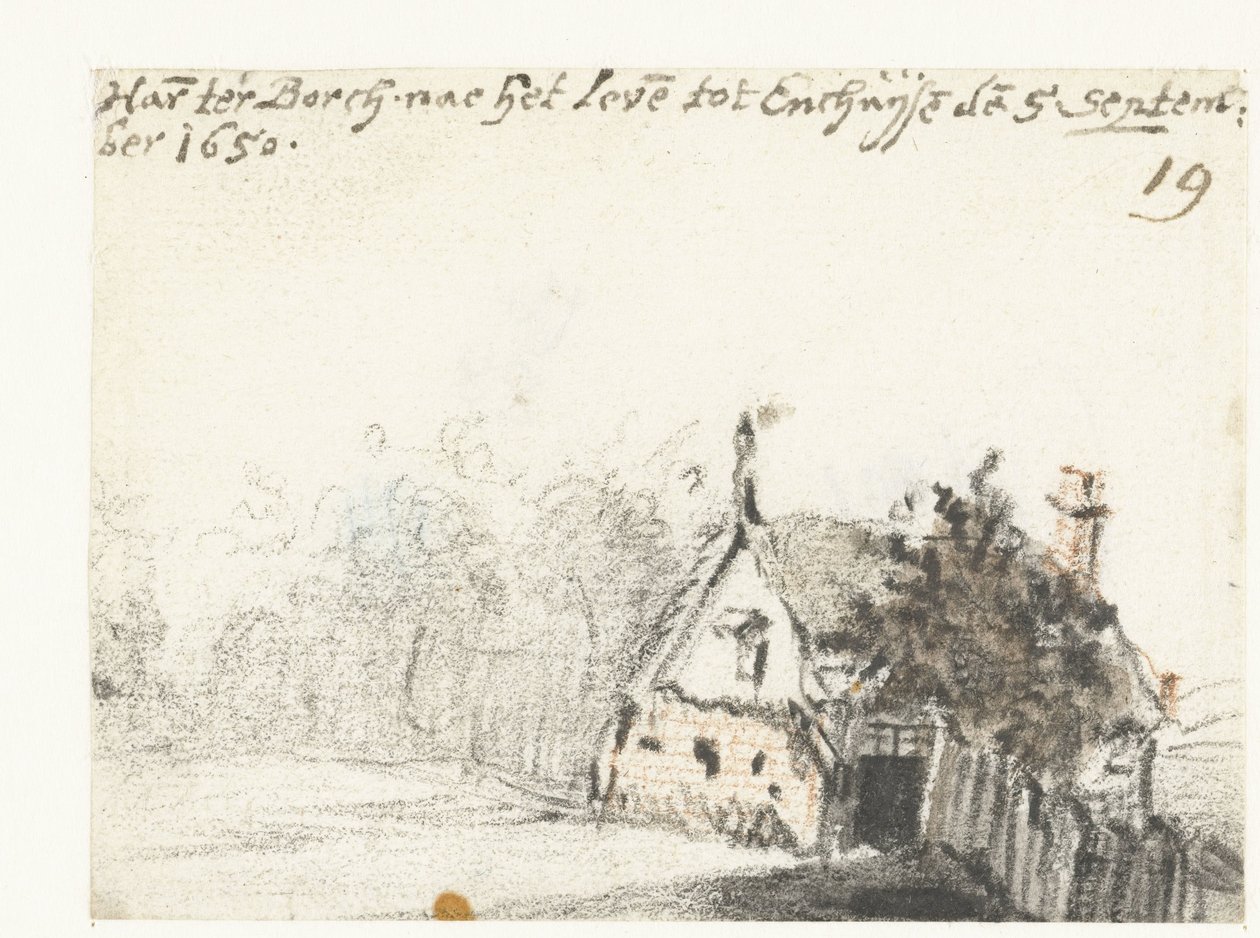 Har̄ ter Borch. nae het Levē tot Enchuÿsē dē 5 Septem:
ber 1650.
19